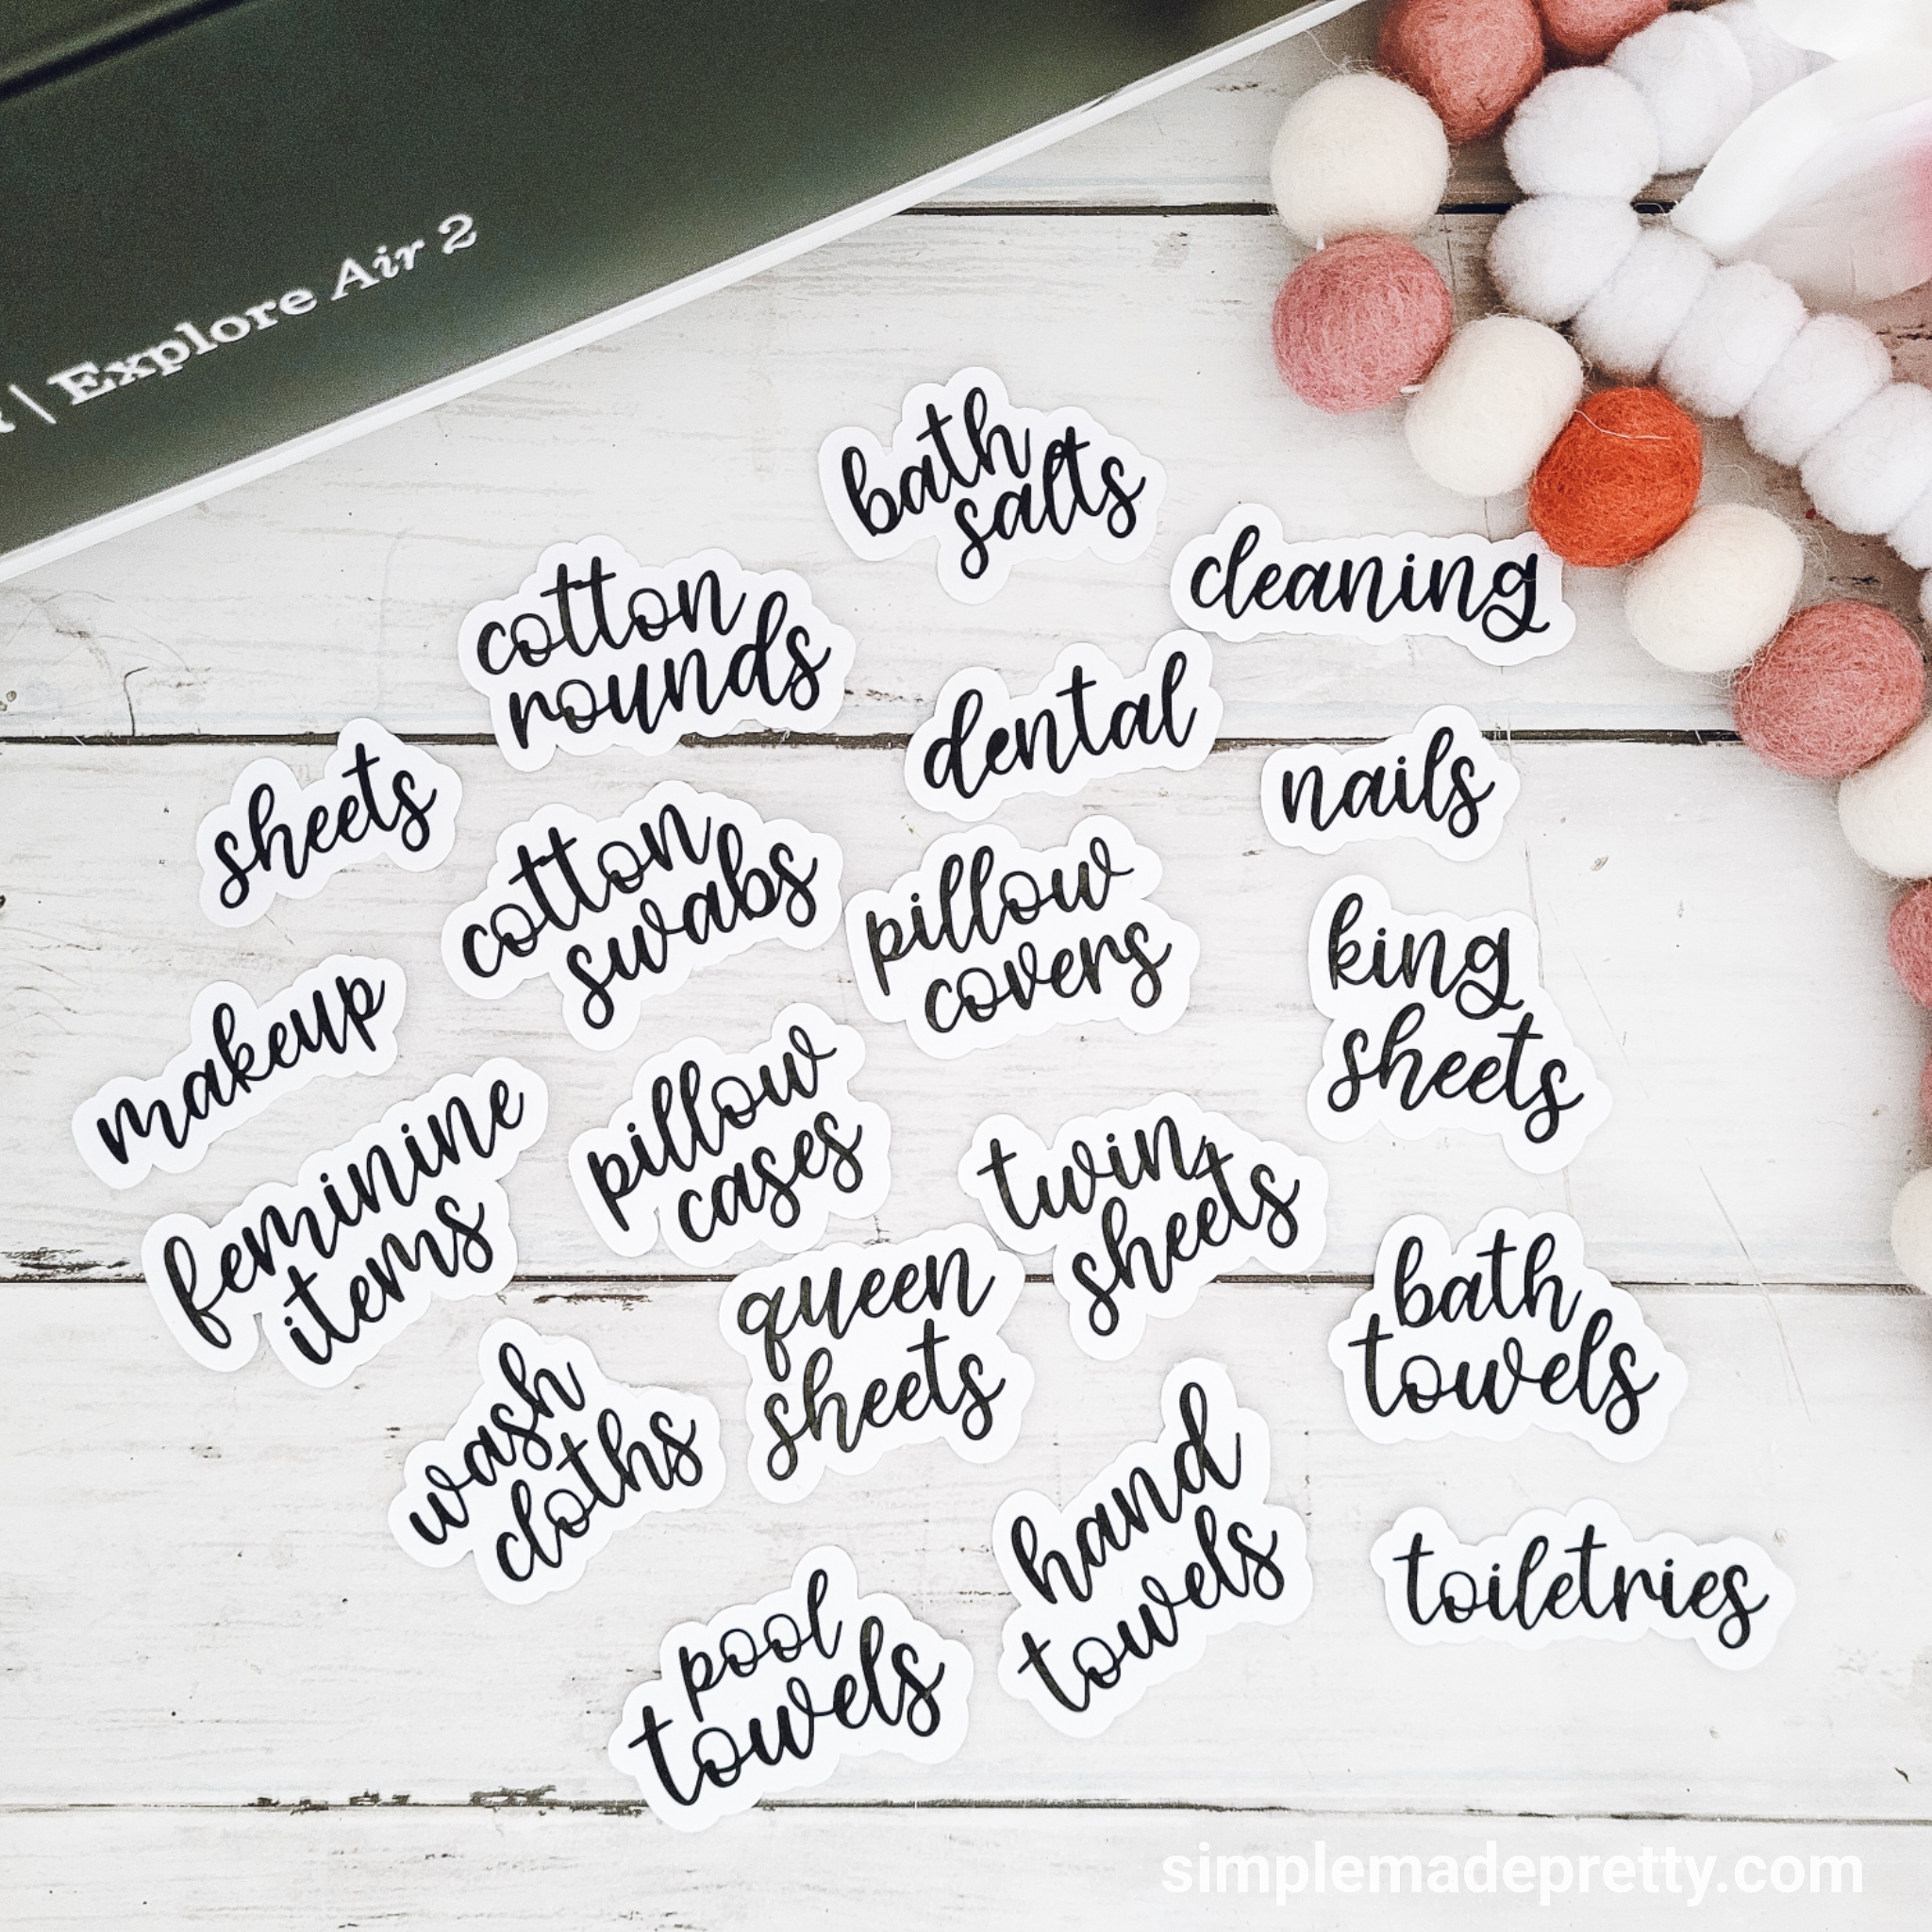 | Explore Air 2
bath
salts
cleaning
cotton
rounds
dental
nails
sheets
cotton
swabs
pillow
covers
king
sheets
makeup
feminine
items
pillow
cases
twin
sheets
bath
towels
queen
sheets
wash
cloths
hand
towels
toiletries
pool
towels
simplemadepretty.com